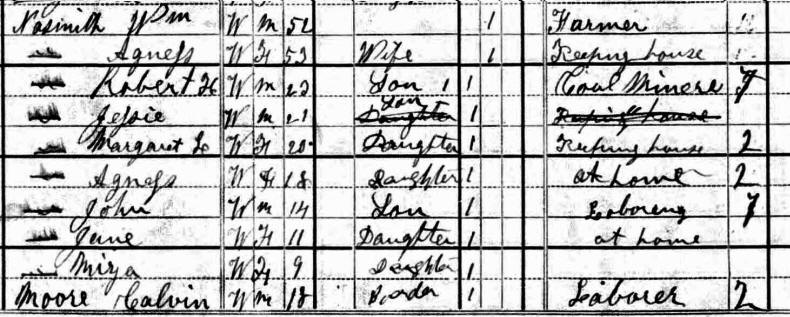 Nasmith Wm W M 52 1 Farmer
" Agness W F 53 Wife 1 Keeping house
" Robert H W M 23 Son 1 1 Coal Minere 7
" Jessie W M 21 Son Daughter 1 Keeping house
" Margaret L W F 20 Daughter 1 Keeping house 2
" Agness W F 18 Daughter 1 at home 2
" John W M 14 Son 1 Laboreng 7
" Jane W F 11 Daughter 1 at home
" Mirza W F 9 Daughter 1
Moore Calvin W M 18 Boarder 1 Laborer 2